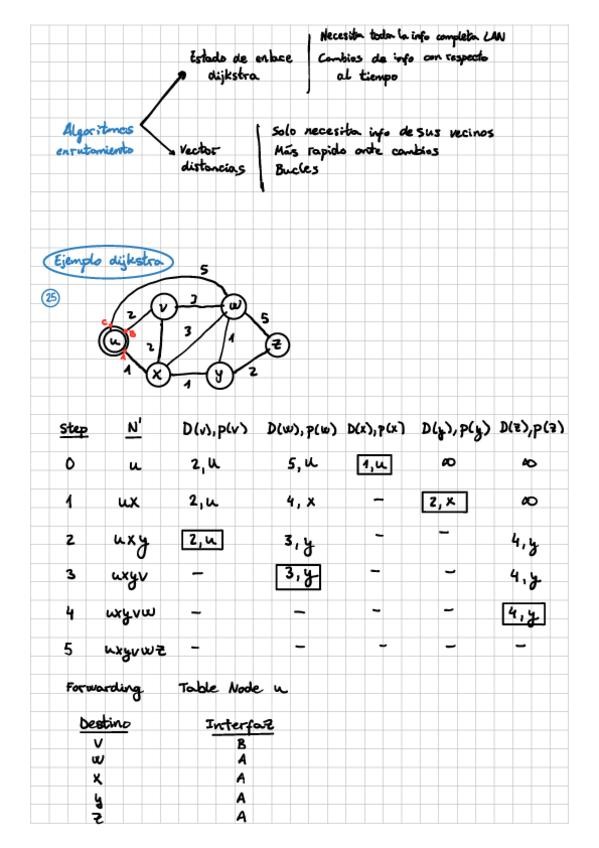 Necesita toda la info completa LAN
Estado de enlace
dijkstra
Cambios de info con respecto
al tiempo
Algoritmos
enrutamiento
Vector
distancias
Solo necesita info de sus vecinos
Más rapido ante cambios
Bucles
Ejemplo dijkstra
25
5
v
3
w
2
5
C
B
u
A
2
3
1
z
1
x
1
y
2
Step N' D(v),p(v) D(w),p(w) D(x),p(x) D(y),p(y) D(z),p(z)
0 u 2,u 5,u 1,u ∞ ∞
1 ux 2,u 4,x - 2,x ∞
2 uxy 2,u 3,y - - 4,y
3 uxyv - 3,y - - 4,y
4 uxyvw - - - - 4,y
5 uxyvwz - - - - -
Forwarding Table Node u
Destino Interfaz
v B
w A
x A
y A
z A